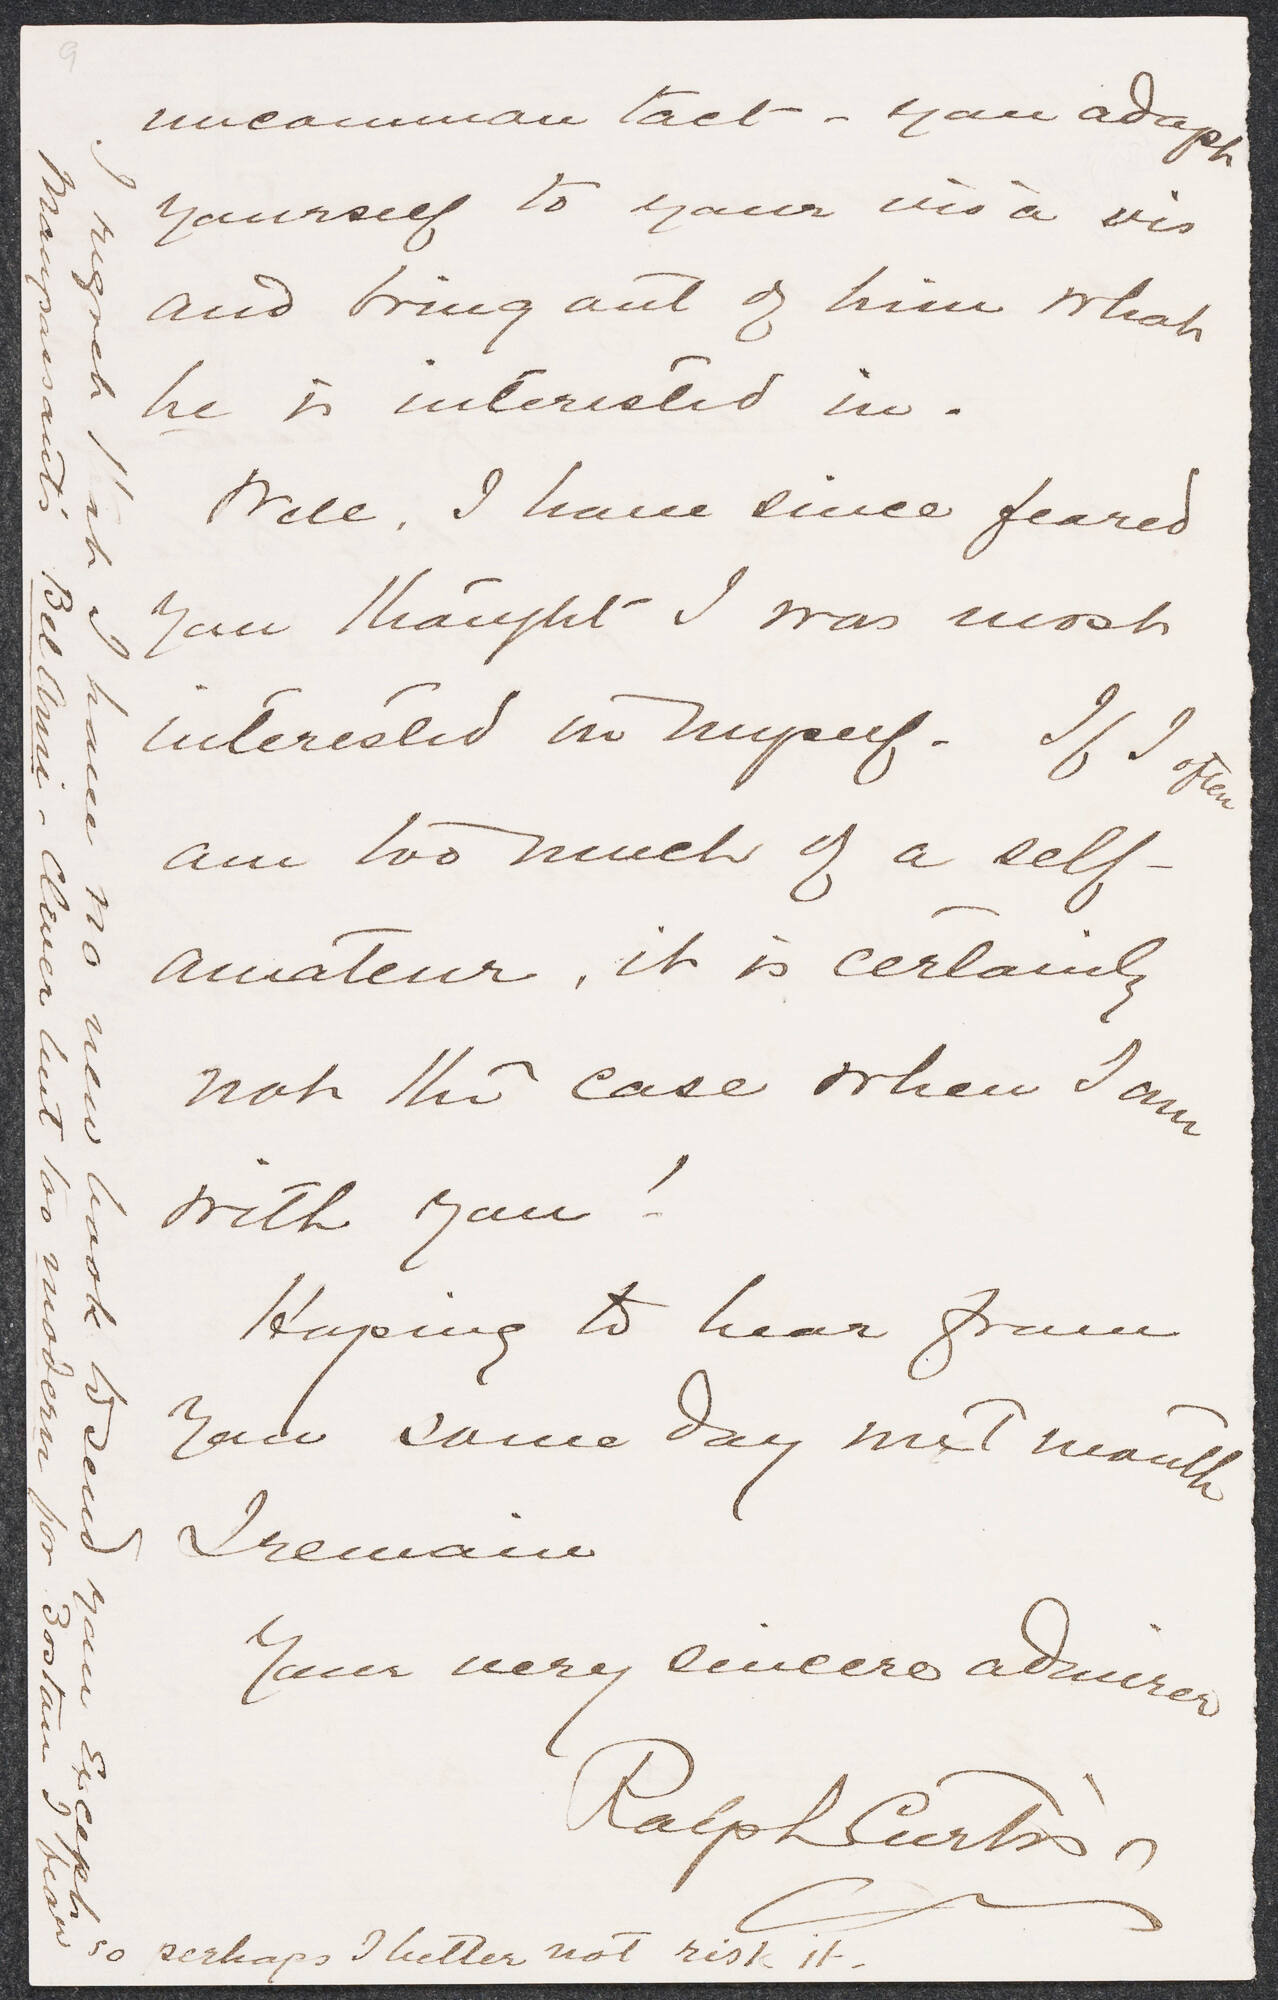 9
uncommon tact - you adapt
yourself to your vis à vis
and bring out of him what
he is interested in.
Well, I have since feared
you thought I was most
interested in myself. If I often
am too much of a self-
amateur, it is certainly
not the case when I am
with you!
Hoping to hear from
you some day next month
I remain
Your very sincere admirer
Ralph Curtis
I regret that I have no new book to send you except
Maupassant's Bel Ami. Clever but too modern for Boston I fear
so perhaps I better not risk it.